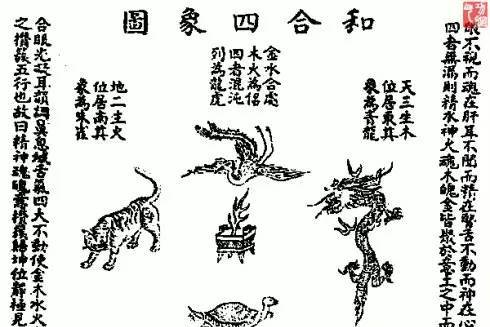 和合四象圖
不視而魂在肝耳不聞而精在腎舌不動而神在心
四者無漏則精水神火魂木魄金皆聚於意土之中而
天三生木
位居東其
象為青龍
金水合處
木火為侶
四者混沌
列為龍虎
地二生火
位居南其
象為朱雀
合眼光凝耳韻調鼻息緘舌氣四大不動使金木水火
之攢簇五行也故曰精神魂魄意攢簇歸坤位靜極見